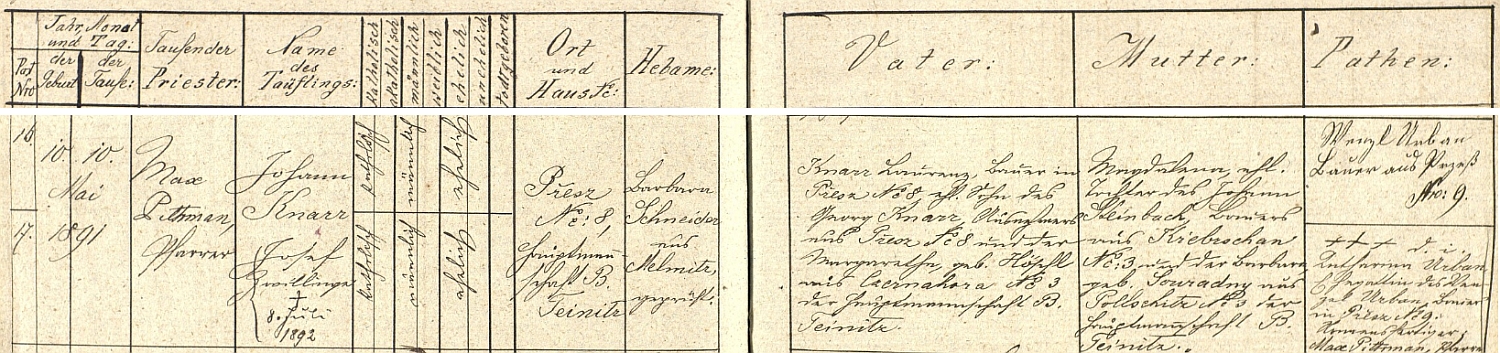 Jahr, Monat
und Tag:
Post
Nro
der
Geburt
der
Taufe:
Taufender
Priester:
Name
des
Täuflings:
katholisch
akatholisch
männlich
weiblich
ehelich
unehelich
todtgeboren
Ort
und
Haus Nc:
Hebame:
Vater:
Mutter:
Pathen:
16.
17.
10. 10.
Mai
1891
Max
Pittman,
Pfarrer
Johann
Knarr
Josef
Zwillinge
†
8. Juli
1892
katholisch
männlich
ehelich
katholisch
männlich
ehelich
Presz
No: 8,
Hauptman-
schaft B.
Teinitz
Barbara
Schneider
aus
Melmitz,
geprüft.
Knarr Laurenz, Bauer in
Presz No 8, ehl. Sohn des
Georg Knarr, Ausnehmers
aus Presz Nc 8 und der
Margarethe, geb. Höschl
aus Czernahora No 3
der Hauptmannschaft B.
Teinitz.
Magdalena, ehl.
Tochter des Johann
Steinbach, Bauers
aus Křebrschan
No: 3, und der Barbara
geb. Souradny aus
Pollschitz No 3 der
Hauptmannschaft B.
Teinitz.
Wenzl Urban
Bauer aus Przeß
Nro: 9.
+++ d. i.
Katharina Urban,
Ehegattin des Wen-
zel Urban, Bauer
in Presz No 9.
Namensfertiger:
Max Pittman, Pfarrer